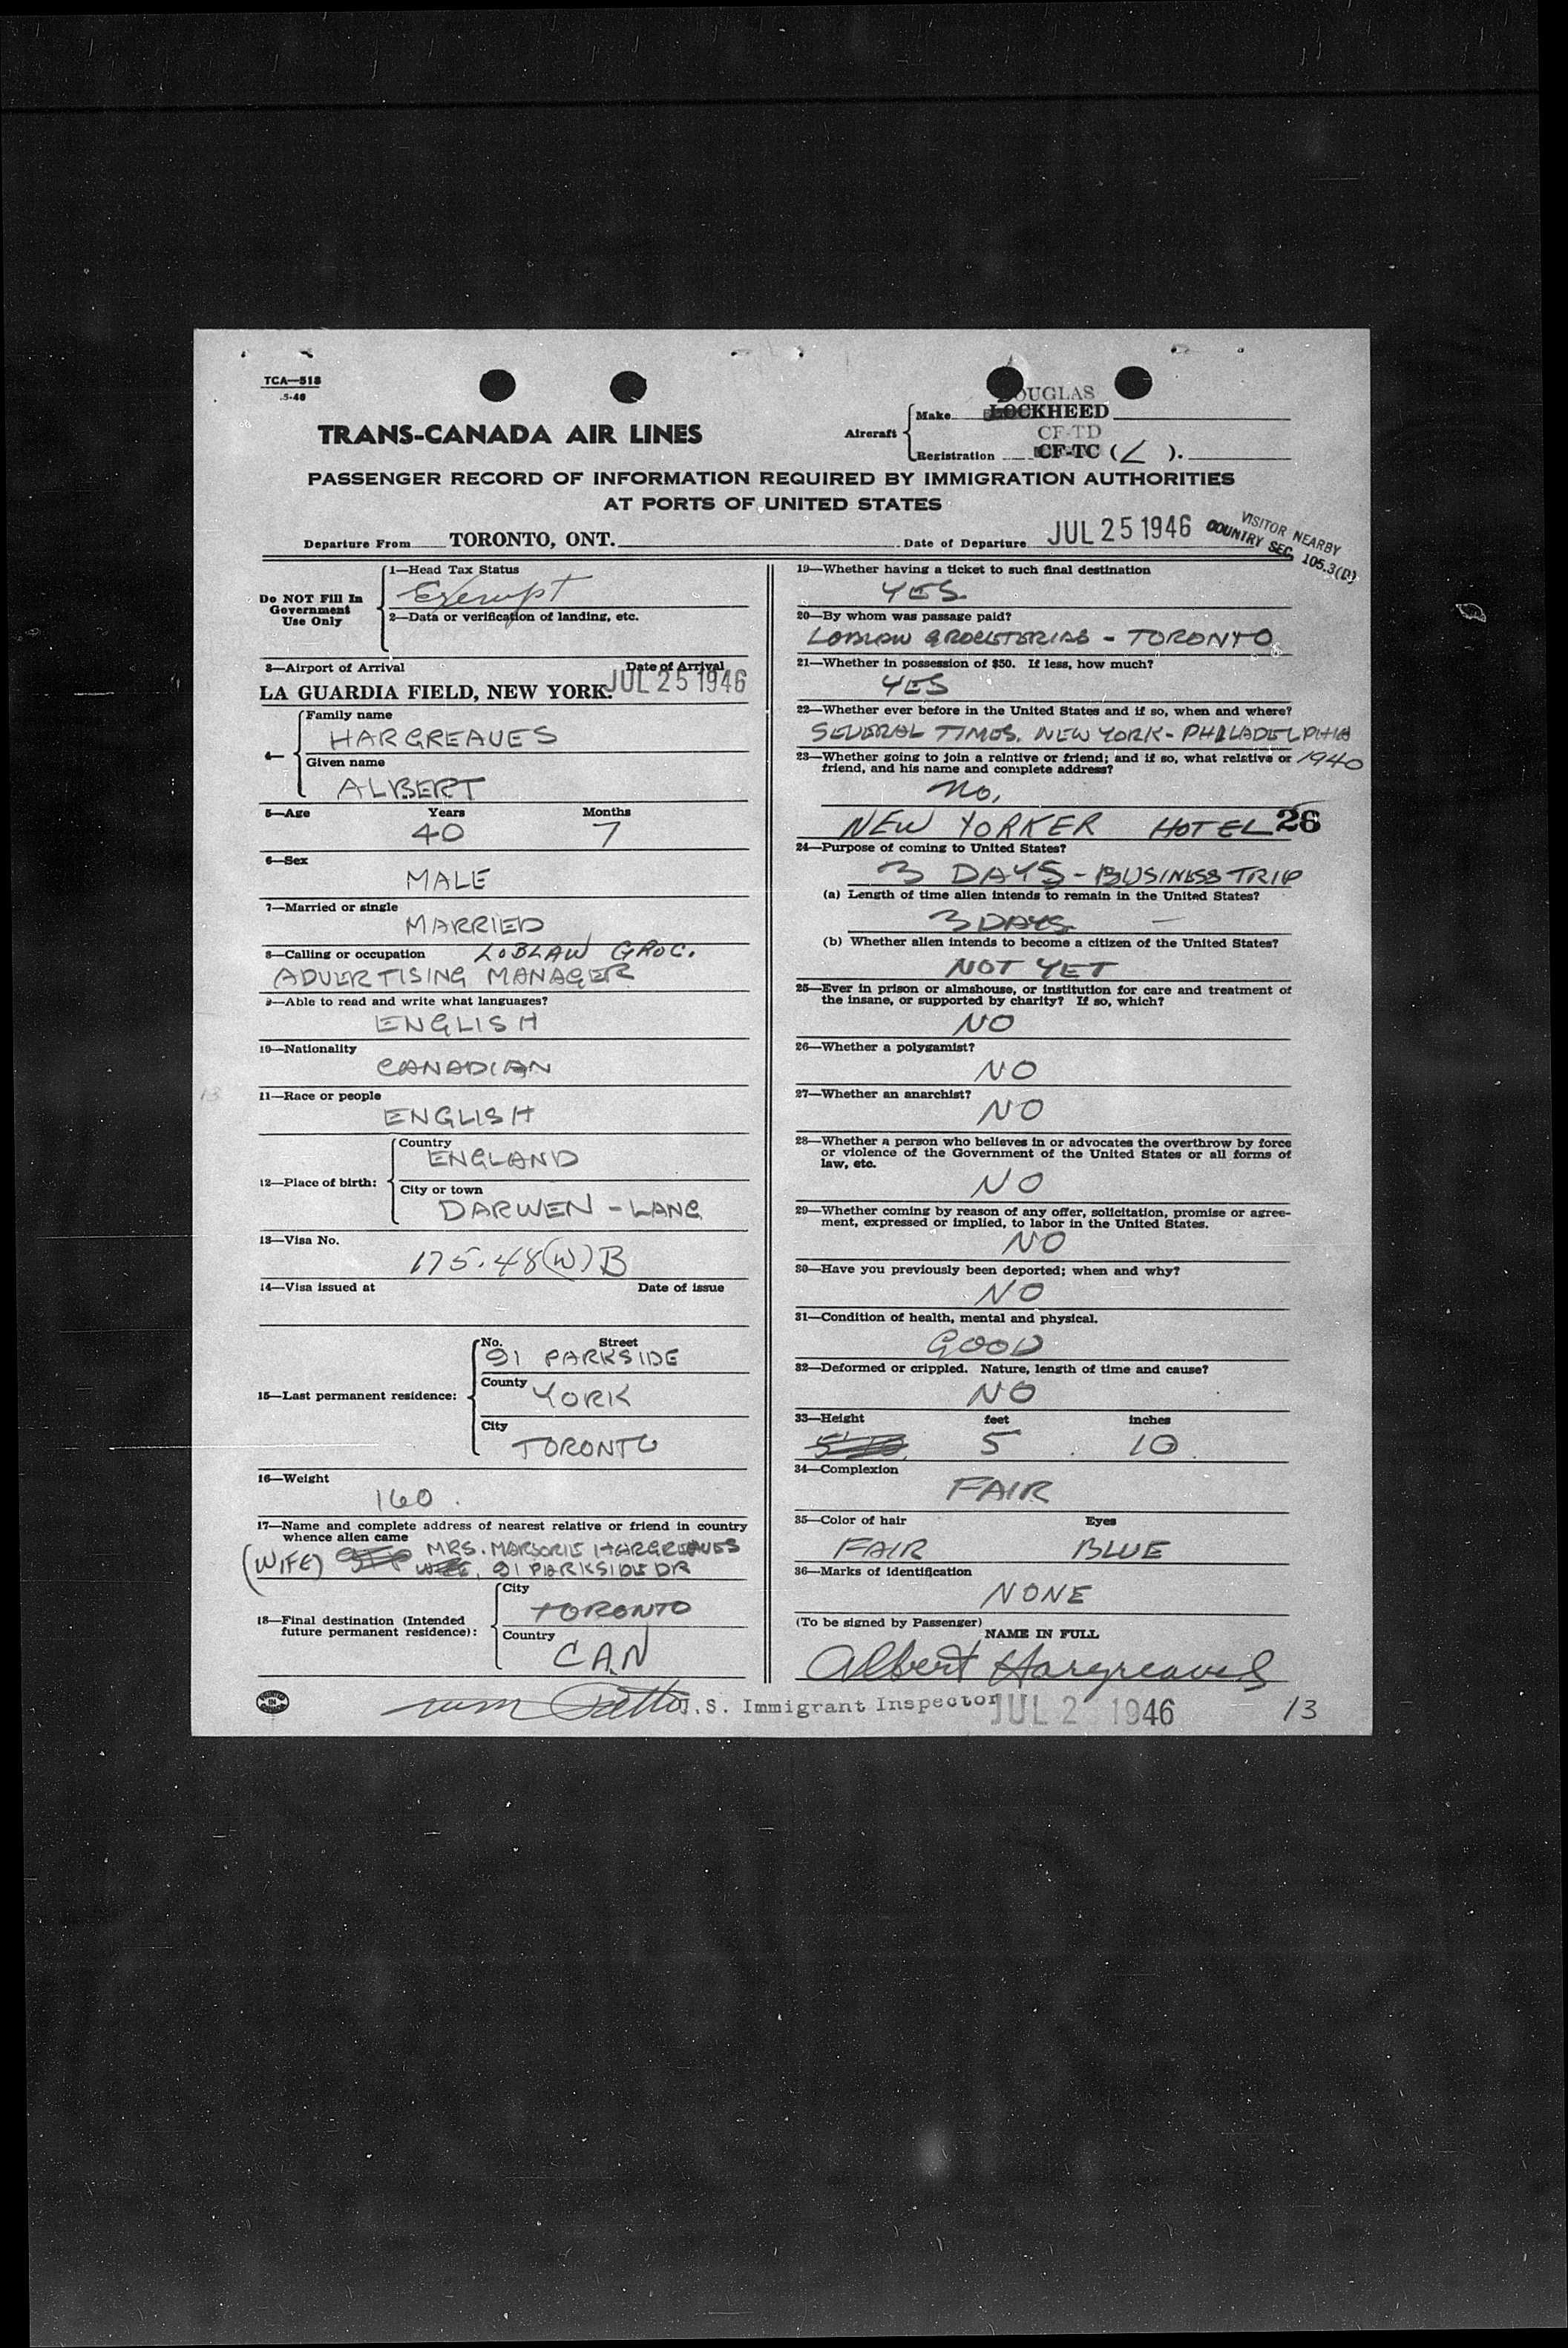 TCA—518
5-46
TRANS-CANADA AIR LINES
DOUGLAS
Aircraft Make LOCKHEED
CF-TD
Registration CF-TC (L ).
PASSENGER RECORD OF INFORMATION REQUIRED BY IMMIGRATION AUTHORITIES
AT PORTS OF UNITED STATES
Departure From TORONTO, ONT. Date of Departure JUL 25 1946
VISITOR NEARBY
COUNTRY SEC. 105.3(D)
Do NOT Fill In
Government
Use Only
1—Head Tax Status
Exempt
2—Data or verification of landing, etc.
3—Airport of Arrival Date of Arrival
LA GUARDIA FIELD, NEW YORK. JUL 25 1946
4— Family name
HARGREAVES
Given name
ALBERT
5—Age Years Months
40 7
6—Sex
MALE
7—Married or single
MARRIED
8—Calling or occupation LOBLAW GROC.
ADVERTISING MANAGER
9—Able to read and write what languages?
ENGLISH
10—Nationality
CANADIAN
11—Race or people
ENGLISH
12—Place of birth: Country
ENGLAND
City or town
DARWEN - LANC
13—Visa No.
175.48(W)B
14—Visa issued at Date of issue
15—Last permanent residence: No. Street
91 PARKSIDE
County
YORK
City
TORONTO
16—Weight
160.
17—Name and complete address of nearest relative or friend in country
whence alien came
(WIFE) MRS. MARJORIE HARGREAVES
91 PARKSIDE DR
18—Final destination (Intended
future permanent residence):
City
TORONTO
Country
CAN
19—Whether having a ticket to such final destination
YES
20—By whom was passage paid?
LOBLAW GROCETERIAS - TORONTO
21—Whether in possession of $50. If less, how much?
YES
22—Whether ever before in the United States and if so, when and where?
SEVERAL TIMES. NEW YORK - PHILADELPHIA
1940
23—Whether going to join a relative or friend; and if so, what relative or
friend, and his name and complete address?
No.
NEW YORKER HOTEL 26
24—Purpose of coming to United States?
3 DAYS - BUSINESS TRIP
(a) Length of time alien intends to remain in the United States?
3 DAYS —
(b) Whether alien intends to become a citizen of the United States?
NOT YET
25—Ever in prison or almshouse, or institution for care and treatment of
the insane, or supported by charity? If so, which?
NO
26—Whether a polygamist?
NO
27—Whether an anarchist?
NO
28—Whether a person who believes in or advocates the overthrow by force
or violence of the Government of the United States or all forms of
law, etc.
NO
29—Whether coming by reason of any offer, solicitation, promise or agree-
ment, expressed or implied, to labor in the United States.
NO
30—Have you previously been deported; when and why?
NO
31—Condition of health, mental and physical.
GOOD
32—Deformed or crippled. Nature, length of time and cause?
NO
33—Height feet inches
5 10
34—Complexion
FAIR
35—Color of hair Eyes
FAIR BLUE
36—Marks of identification
NONE
(To be signed by Passenger)
NAME IN FULL
Albert Hargreaves
U.S. Immigrant Inspector JUL 2 1946
13